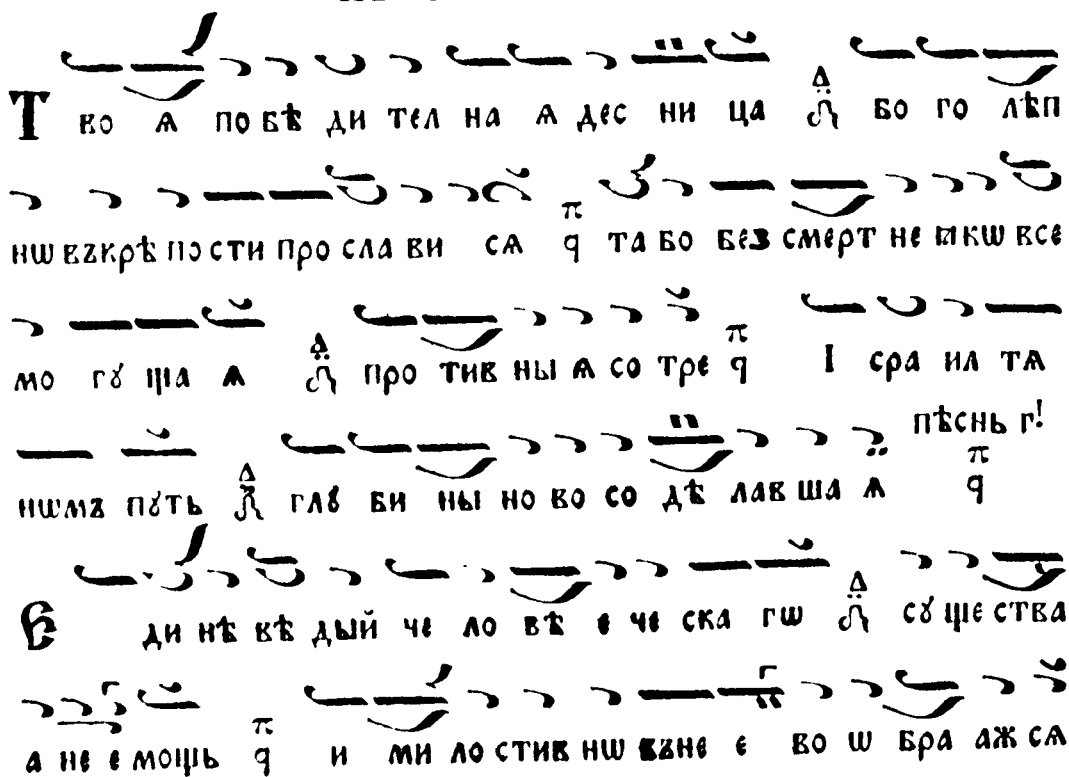 Т во ѧ по бѣ ди тел на ѧ дес ни ца бо го лѣп
нѡ въ крѣ по сти про сла ви сѧ та бо без смерт не ꙗкѡ все
мо гꙋ ща ѧ про тив ны ѧ со тре І сра ил тѧ
нѡмъ пꙋть глꙋ би ны но во со дѣ лав ша ѧ пѣснь г!
Є ди нѣ вѣ дый че ло вѣ е че ска гѡ сꙋ ще ства
а не е мощь и ми ло стив нѡ въне е во ѡ бра аж сѧ